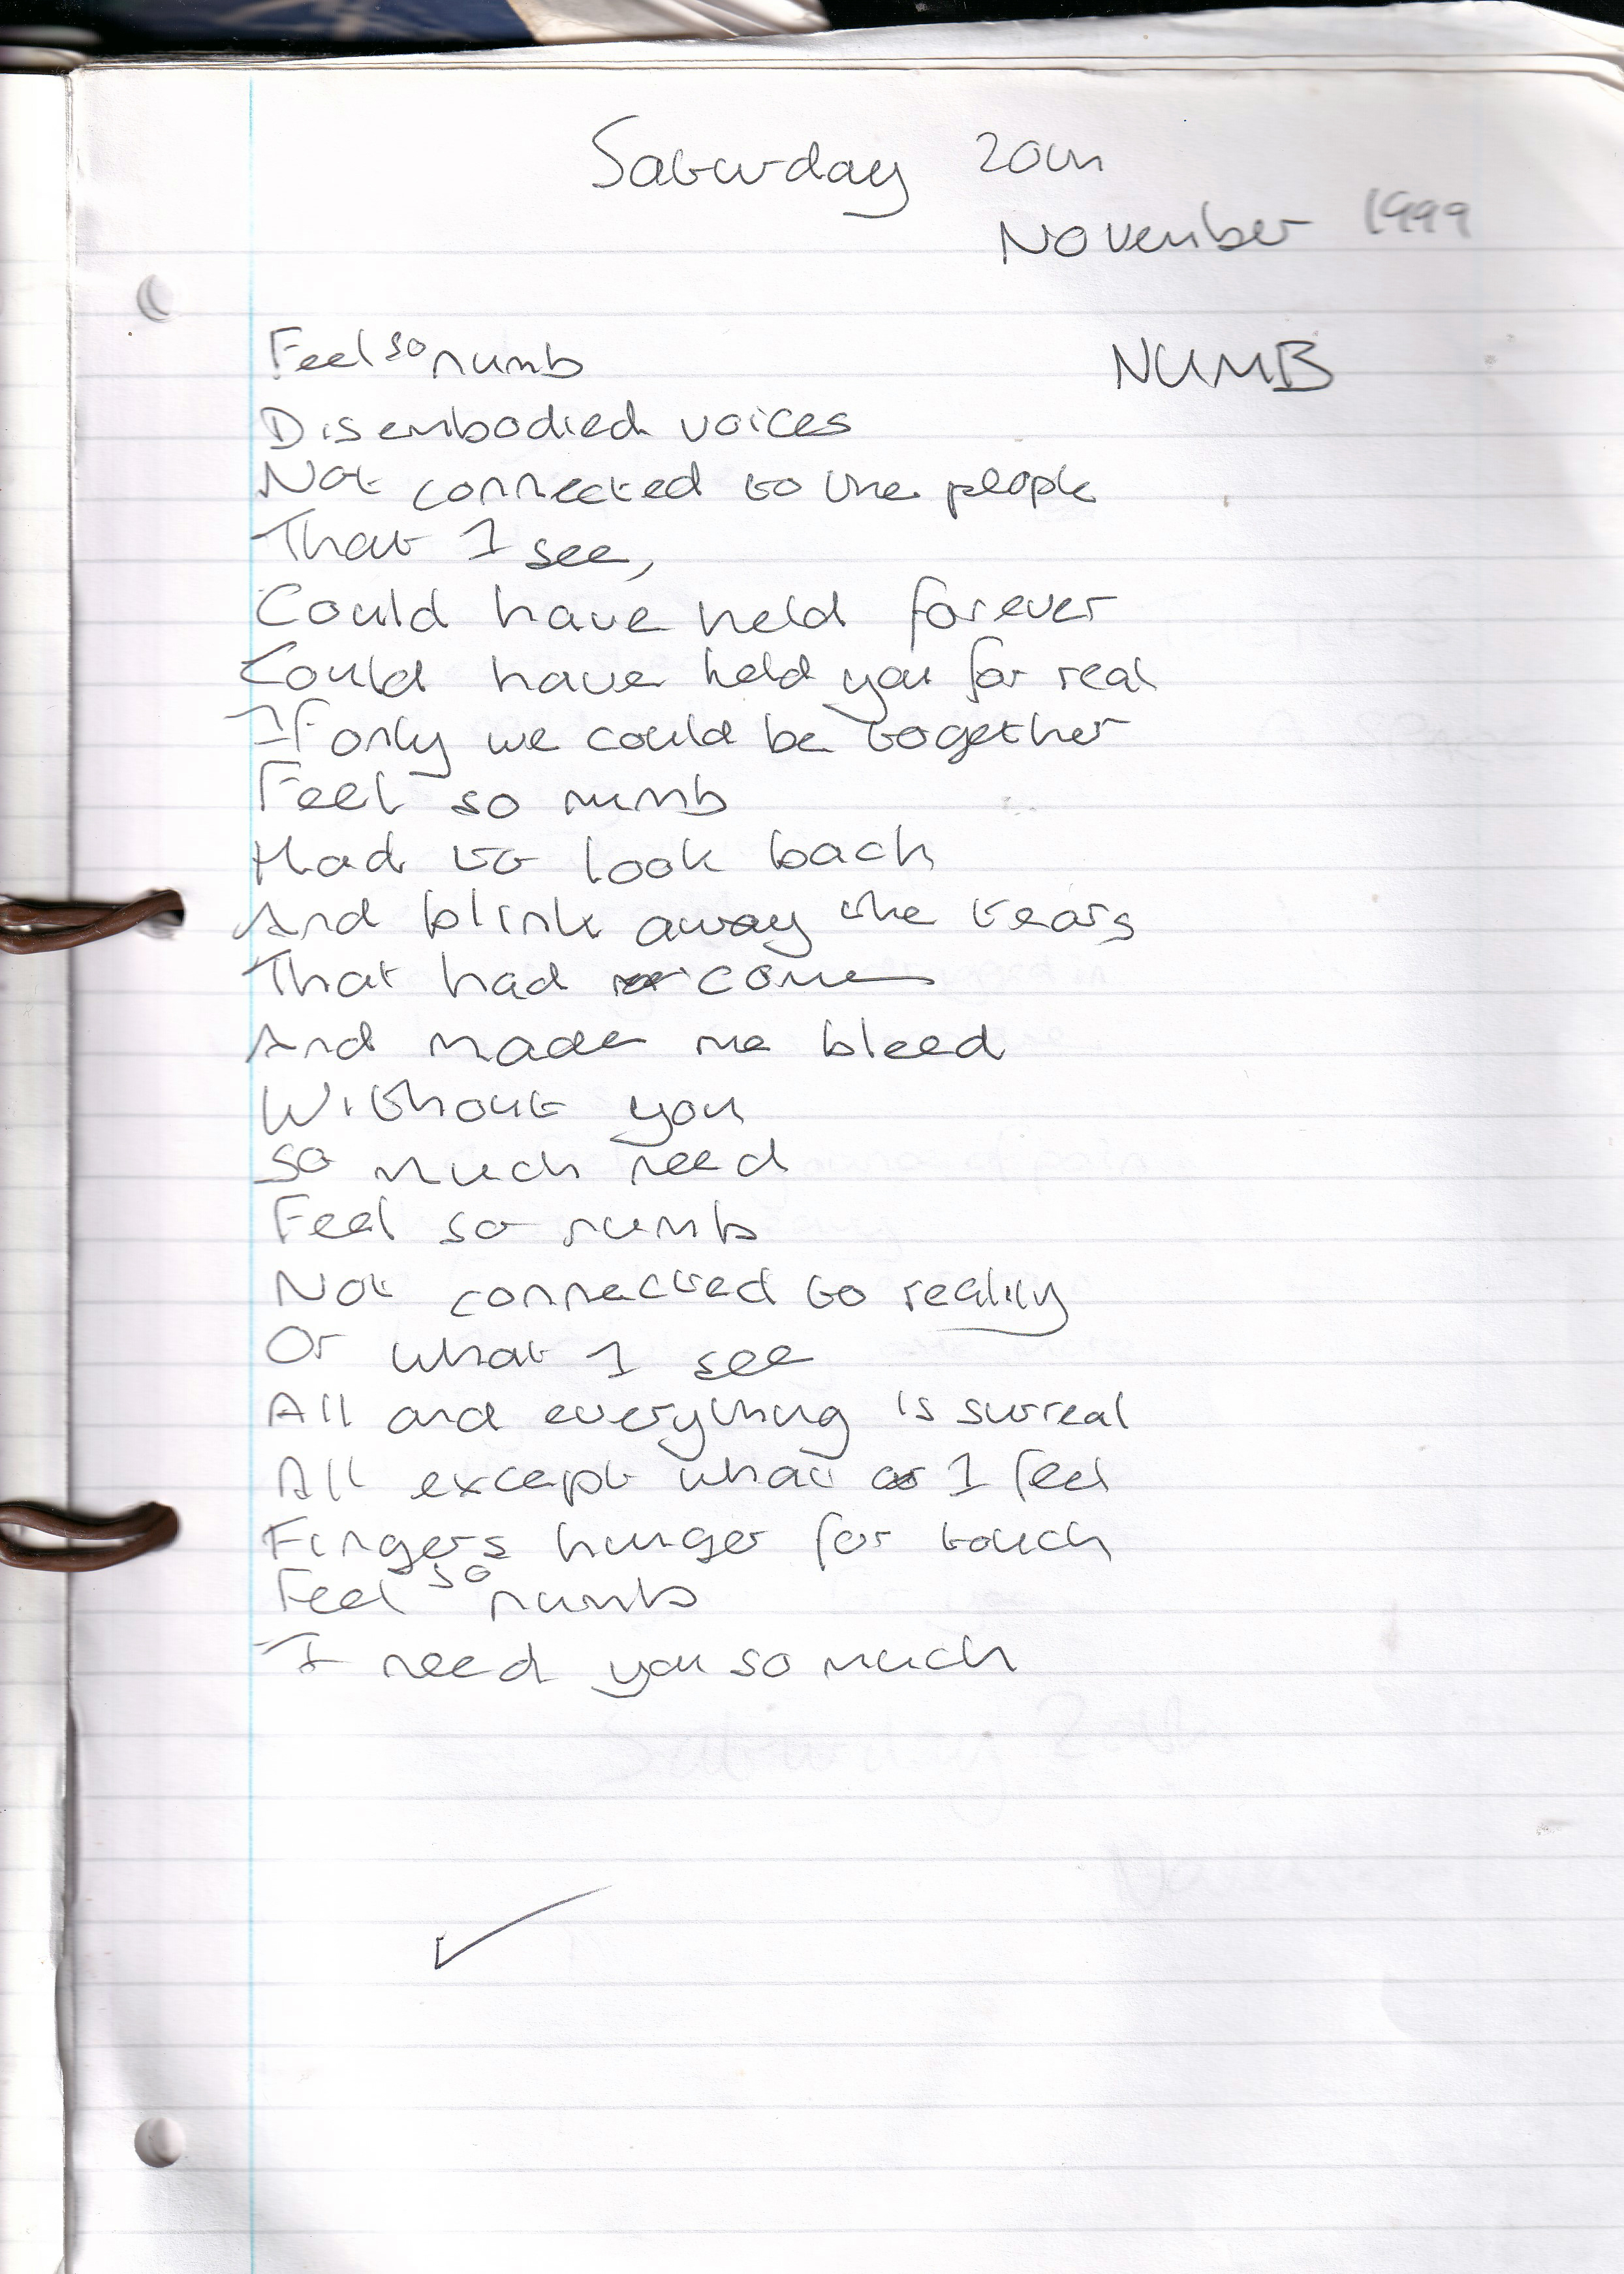 Saturday 20th
November 1999
NUMB
Feel so numb
Disembodied voices
Not connected to the people
That I see,
Could have held forever
Could have held you for real
If only we could be together
Feel so numb
Had to look back
And blink away the tears
That had come
And made me bleed
Without you
So much need
Feel so numb
Not connected to reality
Or what I see
All and everything is surreal
All except what I feel
Fingers hunger for touch
Feel so numb
I need you so much